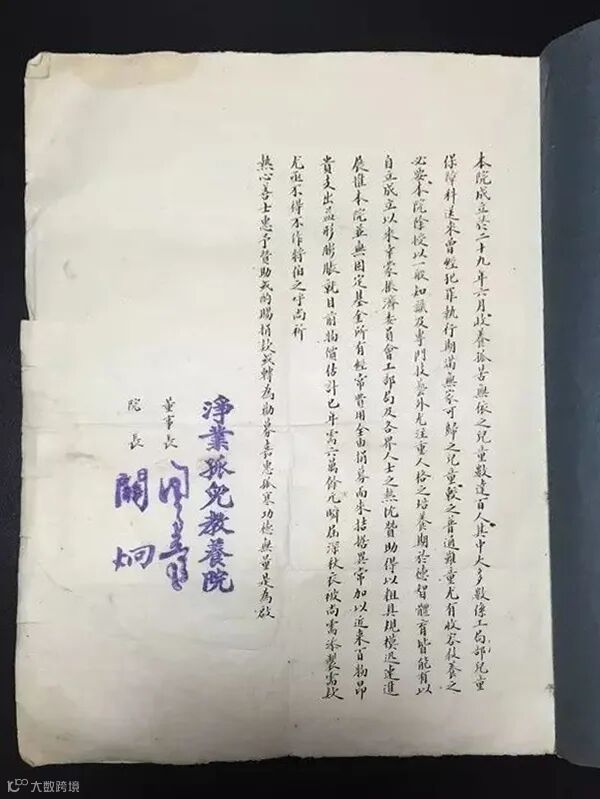 本院成立於二十九年六月收養孤苦無依之兒童數達百人其中大多數係工局部兒童
保障科送來曾經犯罪執行期滿無家可歸之兒童較之普通難童尤有收容教養之
必要本院除授以一般知識及專門技藝外尤注重人格之培養期於德智體育皆能有以
自立成立以來幸蒙振濟委員會工部局及各界人士之熱忱贊助得以粗具規模迅速進
展惟本院並無固定基金所有經常費用全由捐募而來拮据異常加以近來百物昂
貴支出益形膨脹就目前物價估計已年需六萬餘元瞬屆深秋衣被尚需添製需款
尤亟不得不作將伯之呼尚祈
熱心善士惠予贊助或酌賜捐款或轉為勸募嘉惠孤寒功德無量是為啟
淨業孤兒教養院
董事長
院長 關炯
大数跨境